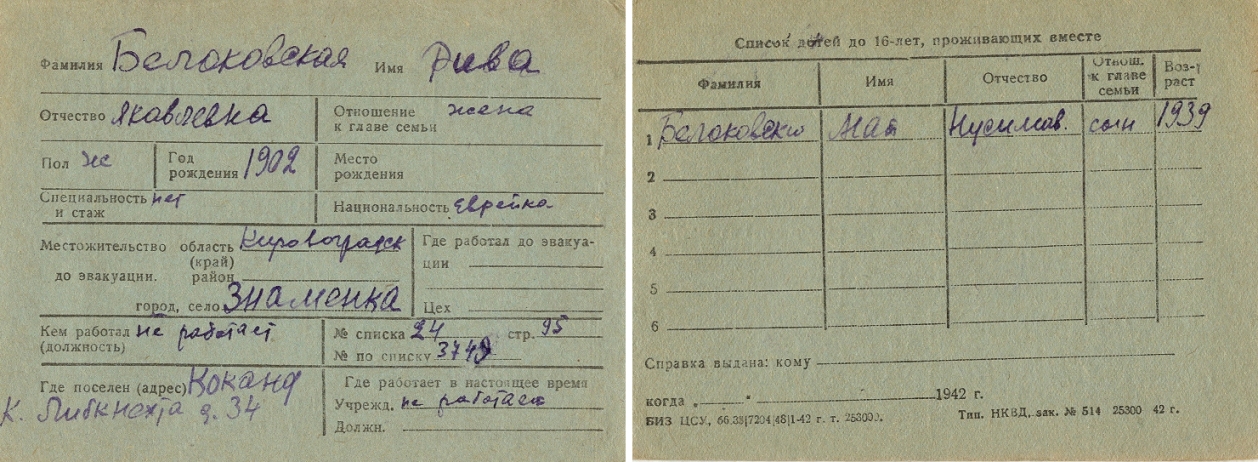 Фамилия Белоковская Имя Рива
Отчество Яковлевна Отношение к главе семьи жена
Пол ж Год рождения 1902 Место рождения
Специальность и стаж нет Национальность Еврейка
Местожительство до эвакуации. область (край) Кировоградск Где работал до эвакуа-
ции
район
город, село Знаменка Цех
Кем работал (должность) не работает № списка 24 стр. 95
№ по списку 3749
Где поселен (адрес) Коканд Где работает в настоящее время
К. Либкнехта д. 34 Учрежд. не работает
Должн.
Список детей до 16-лет, проживающих вместе
Фамилия Имя Отчество Отнош. к главе семьи Воз-раст
1 Белоковски Нусимов. сын 1939
2
3
4
5
6
Справка выдана: кому
когда „ “ 1942 г.
БИЗ ЦСУ, г. т. Тип. НКВД, зак. № 514 25300 42 г.